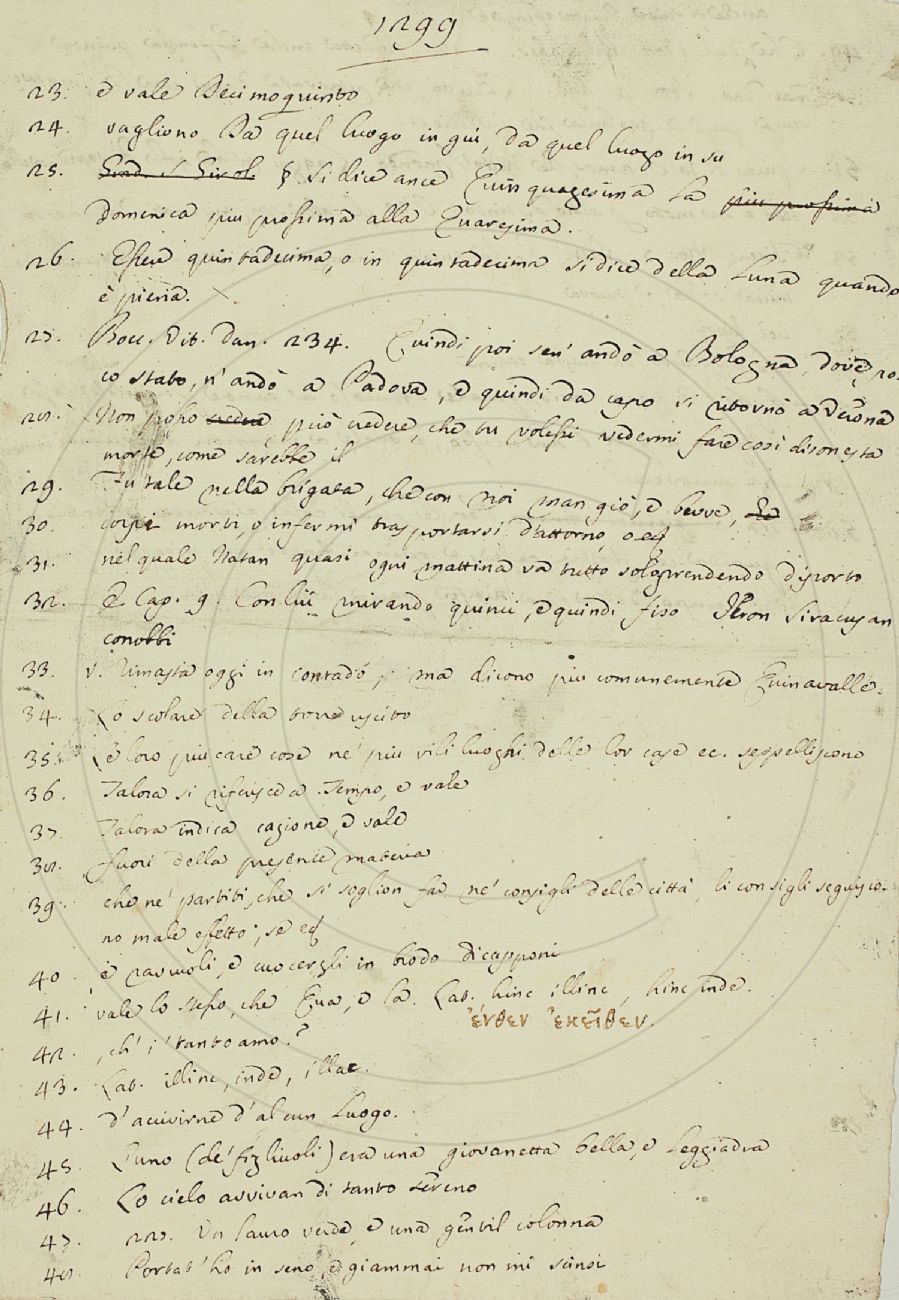 1299
23. e vale Decimoquinto
24. vagliono Da quel luogo in giù, da quel luogo in su
25. § si dice ance Quinquagesima la piu prossima
domenica piu prossima alla Quaresima.
26. Essere quintadecima, o in quintadecima si dice della Luna quando
è piena.
27. Bocc. Vit. Dan. 234. Quindi poi sen' andò a Bologna, dove po-
co stato, n' andò a Padova, e quindi da capo si ritornò a Verona
28. Non posso credere, può credere, che tu volessi vedermi fare così disonesta
morte, come sarebbe il
29. Fu tale nella brigata, che con noi mangiò, e bevve,
30. corpi morti, o infermi trasportarsi d'attorno, o
31. nel quale Natan quasi ogni mattina va tutto solo prendendo diporto
32. E cap. 9. Con lui mirando quinci, e quindi fiso Jeron Siracusan
conobbi
33. v. rimasta oggi in contado, ma dicono piu comunemente Quinavalle.
34. Lo scolare della torre uscito
35. Le loro piu care cose ne' piu vili luoghi delle lor case ec. seppelliscono
36. Talora si riferisce a Tempo, e vale
37. Talora indica cagione, e vale
38. fuori della presente materia
39. che ne' partiti, che si soglion far ne' consigli delle città, li consigli seguisco-
no male effetto, se
40. e raviuoli, e cuocergli in brodo di capponi
41. vale lo stesso, che Qua, e là. Lat. hinc illinc, hinc inde.
ἔνθεν ἐκεῖθεν.
42. , ch' i' tanto amo?
43. Lat. illinc, inde, illac.
44. d'accivirne d'alcun Luogo.
45. L'uno (de' figliuoli) era una giovanetta bella, e leggiadra
46. Lo cielo avvivan di tanto sereno
47. 227. Un lauro verde, e una gentil colonna
48. Portat' ho in seno, e giammai non mi scinsi